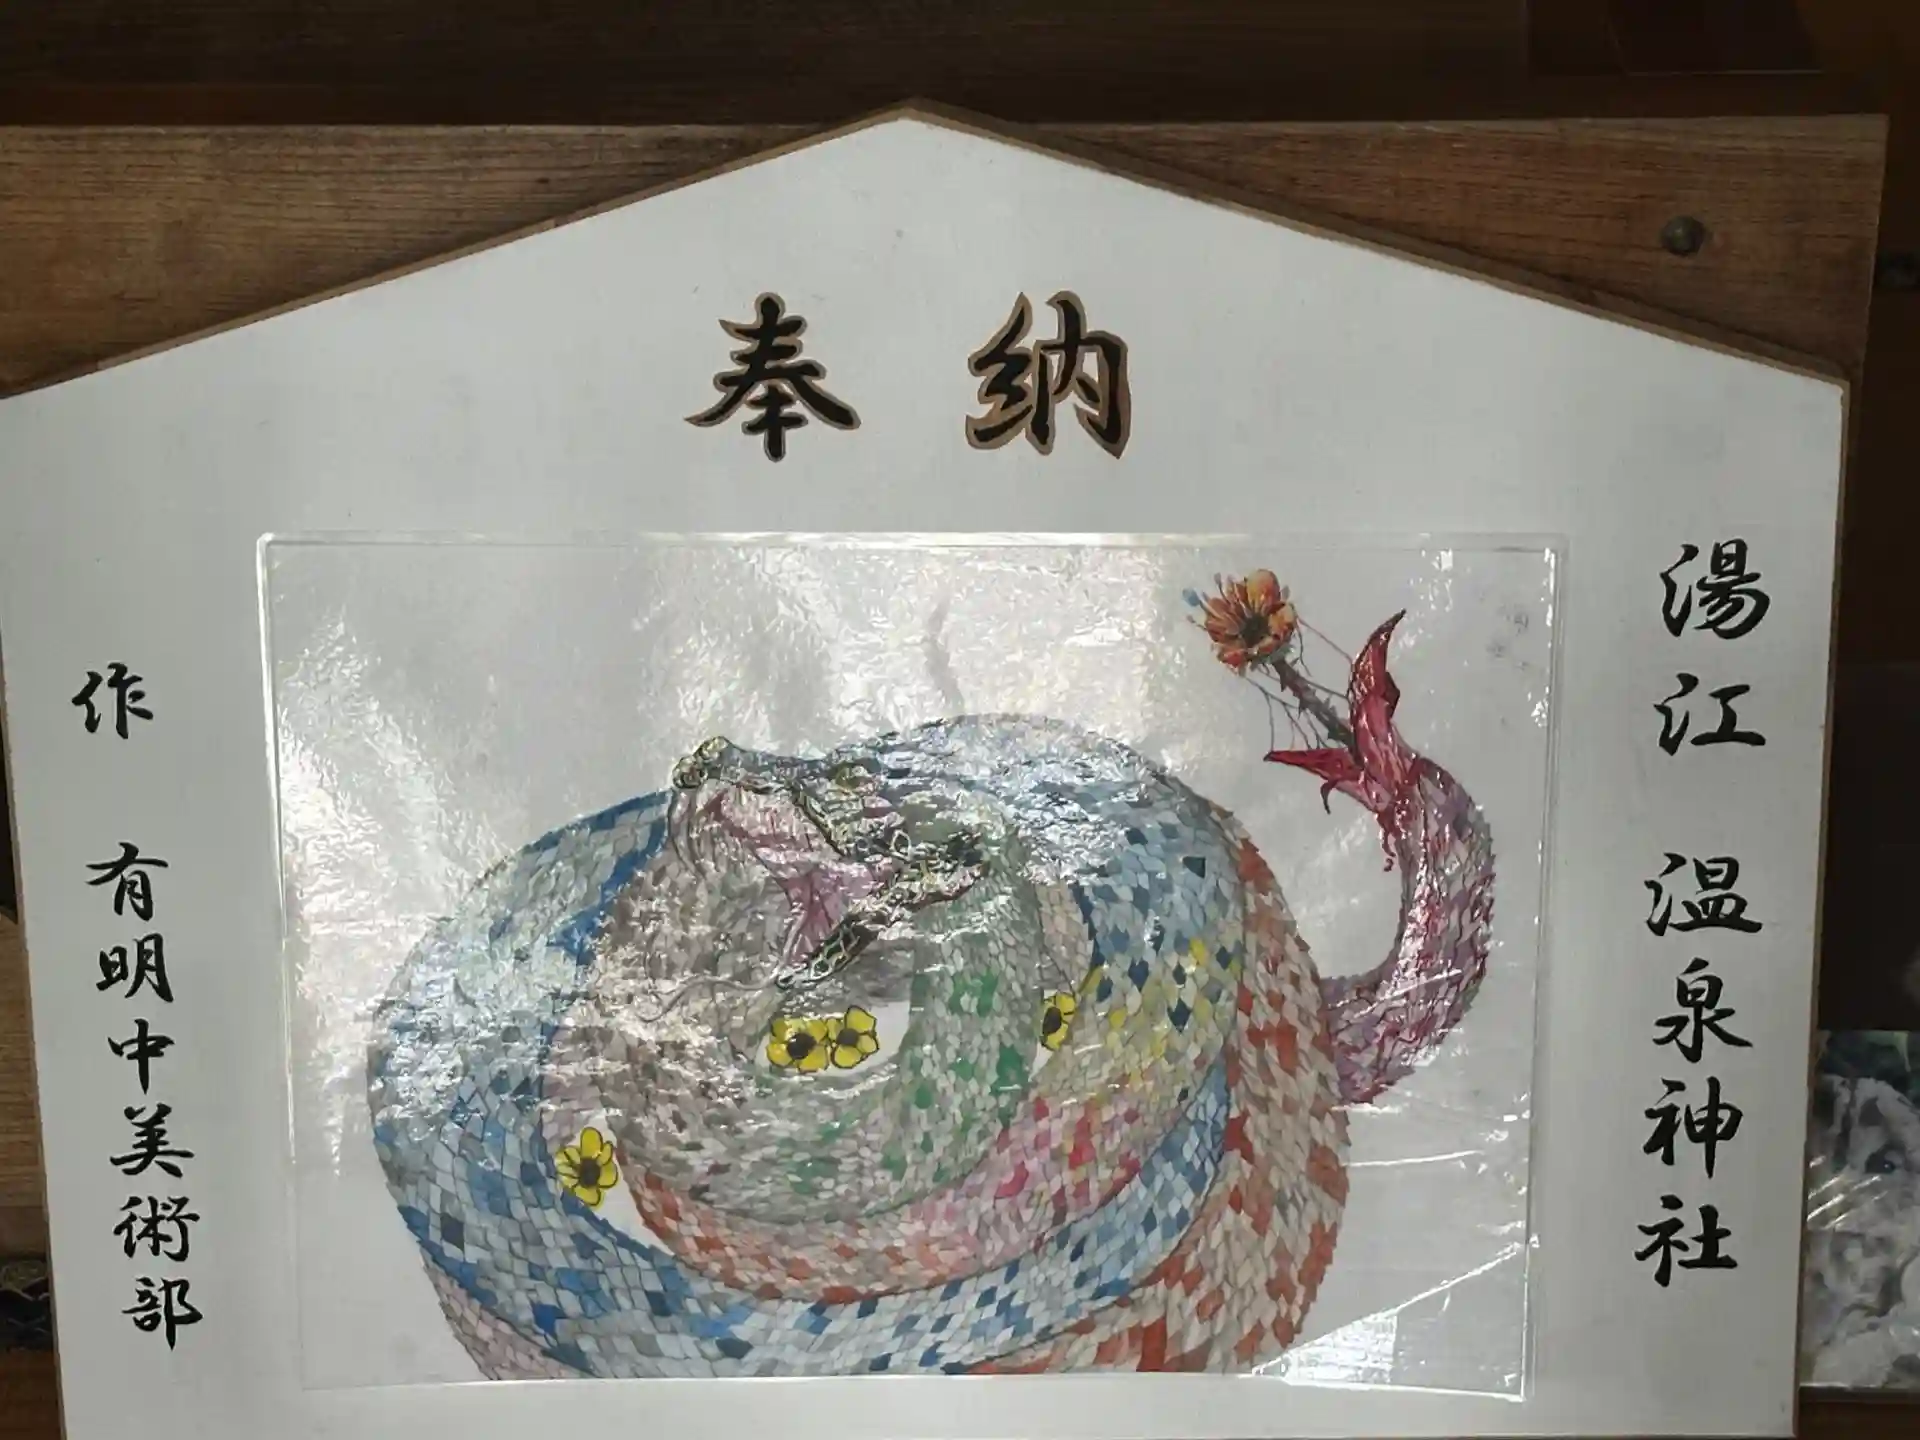 奉納
湯江 温泉神社
作 有明中美術部